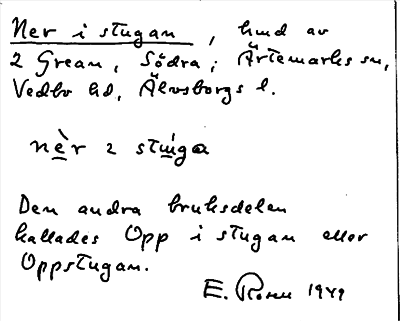 Ner i stugan, hmd av
2 Grean, Södra, Ärtemarks sn,
Vedbo hd, Älvsborgs l.
nè̱r 2 stu̱ga
Den andra bruksdelen
kallades Opp i stugan eller
Oppstugan.
E. Rosen 1949